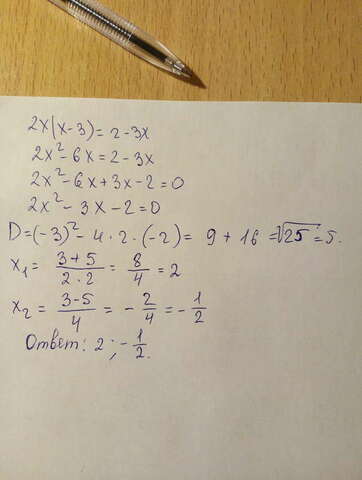 2x(x-3)=2-3x
2x²-6x=2-3x
2x²-6x+3x-2=0
2x²-3x-2=0
D=(-3)²-4·2·(-2)= 9+16 =√25=5.
x₁= (3+5)/(2·2) = 8/4 = 2
x₂= (3-5)/4 = -2/4 = -1/2
Ответ: 2; -1/2.